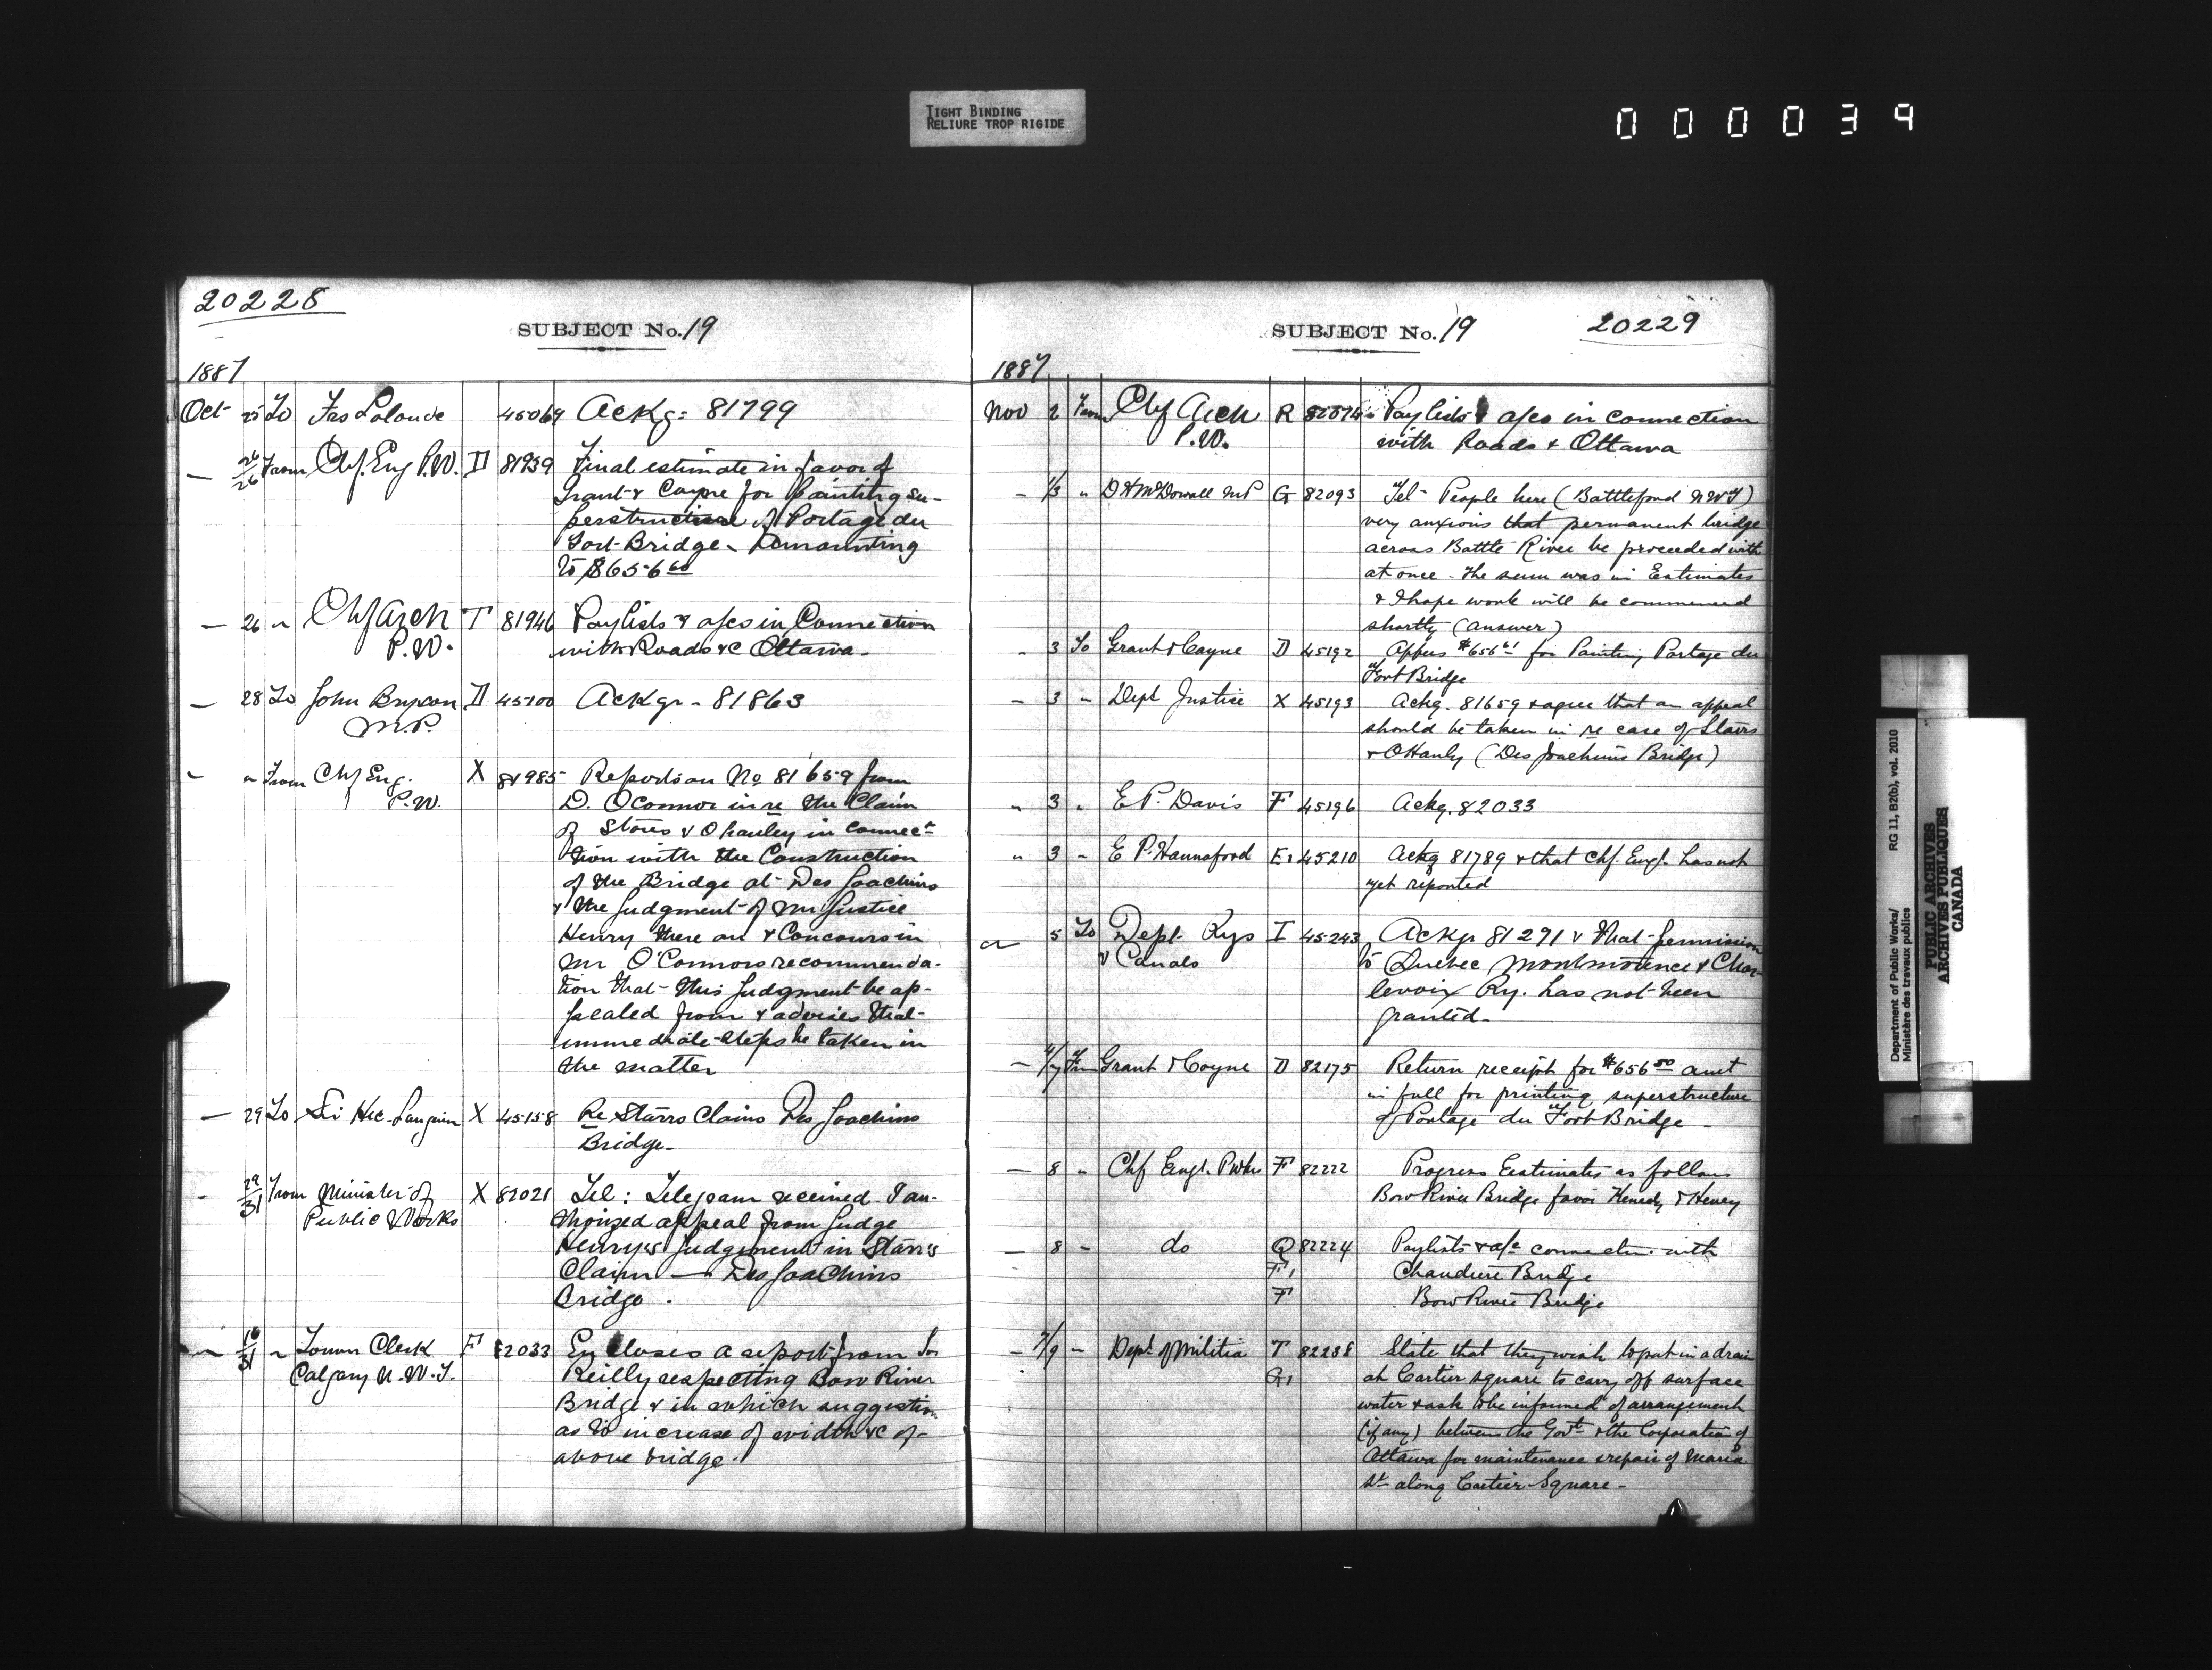 TIGHT BINDING
RELIURE TROP RIGIDE
000039
20228
SUBJECT No. 19
1887
Oct 25 To Frs Lalonde 45069 Ackg: 81799
— 26/26 From Chf. Eng P.W. D 81939 Final estimate in favor of
Grant & Coyne for painting su-
perstructure of Portage du
Fort Bridge
to $656 60
— 26 " Chf Arch T 81946 Paylists & a/cs in Connection
P.W. with Roads &c Ottawa.
— 28 To John Bryson D 45100 Ackgr - 81863
M.P.
" " From Chf Eng. X 81985 Reports on No 81659 from
P.W. D. OConnor in re the Claim
of Stares & Ohanley in connec-
tion with the Construction
of the Bridge at Des Joachims
& the judgment of Mr Justice
Henry there on & Concours in
Mr O'Connors recommenda-
tion that this judgment be ap-
pealed from & advises that
immediate steps be taken in
the matter
— 29 To Sir Hec. Langevin X 45158 Re Starrs Claims Des Joachims
Bridge.
- 29/31 From Minister of X 82021 Tel: Telegram received I au-
Public Works thorized appeal from Judge
Henry's judgment in Starrs
Claim — Des Joachims
Bridge.
" /31 " Town Clerk F 82033 Encloses a report from Jos
Calgary N.W.T. Reilly respecting Bow River
Bridge & in which suggestion
as to increase of width &c of
above bridge.
SUBJECT No. 19
20229
1887
Nov 2 From Chf Arch R 82074 Paylists & a/cs in connection
P.W. with Roads & Ottawa
— 1/3 " D H McDowall MP G 82093 Tel- People here (Battleford NWT)
very anxious that permanent bridge
across Battle River be proceeded with
at once - the sum was in Estimates
& I hope work will be commenced
shortly (answer)
- 3 To Grant & Coyne D 45192 $656 for Painting Portage du
Fort Bridge
— 3 " Dept Justice X 45193 Ackg. 81659 & agree that an appeal
should be taken in re case of Stairs
& OHanly (Des Joachims Bridge)
" 3 " E P. Davis F 45196 Ackg. 82033
" 3 " E P. Hannaford E1 45210 Ackg 81789 & that Chf. Engr. has not
yet reported
5 To Dept Rys I 45243 Ackgr 81291 & that permission
& Canals to Quebec Montmorence & Char-
levoix Ry. has not been
granted.
— 4/7 Fm Grant & Coyne D 82175 Return receipt for $656 80 amt
in full for printing superstructure
of Portage du Fort Bridge —
— 8 " Chf Engr. Pwks F 82222 Progress Estimates as follows
Bow River Bridge favor Kenedy & Henry
— 8 " do Q 82224 Paylists & a/c connection with
F1 Chaudiere Bridge
F Bow River Bridge
— 7/9 " Dept of Militia T 82238 State that they wish to put in a drain
G1 at Cartier square to carry off surface
water & ask to be informed of arrangement
(if any) between the Govt & the Corporation of
Ottawa for maintenance & repair of Maria
St along Cartier Square —
Department of Public Works/
Ministère des travaux publics
RG 11, B2(b), vol. 2010
PUBLIC ARCHIVES
ARCHIVES PUBLIQUES
CANADA